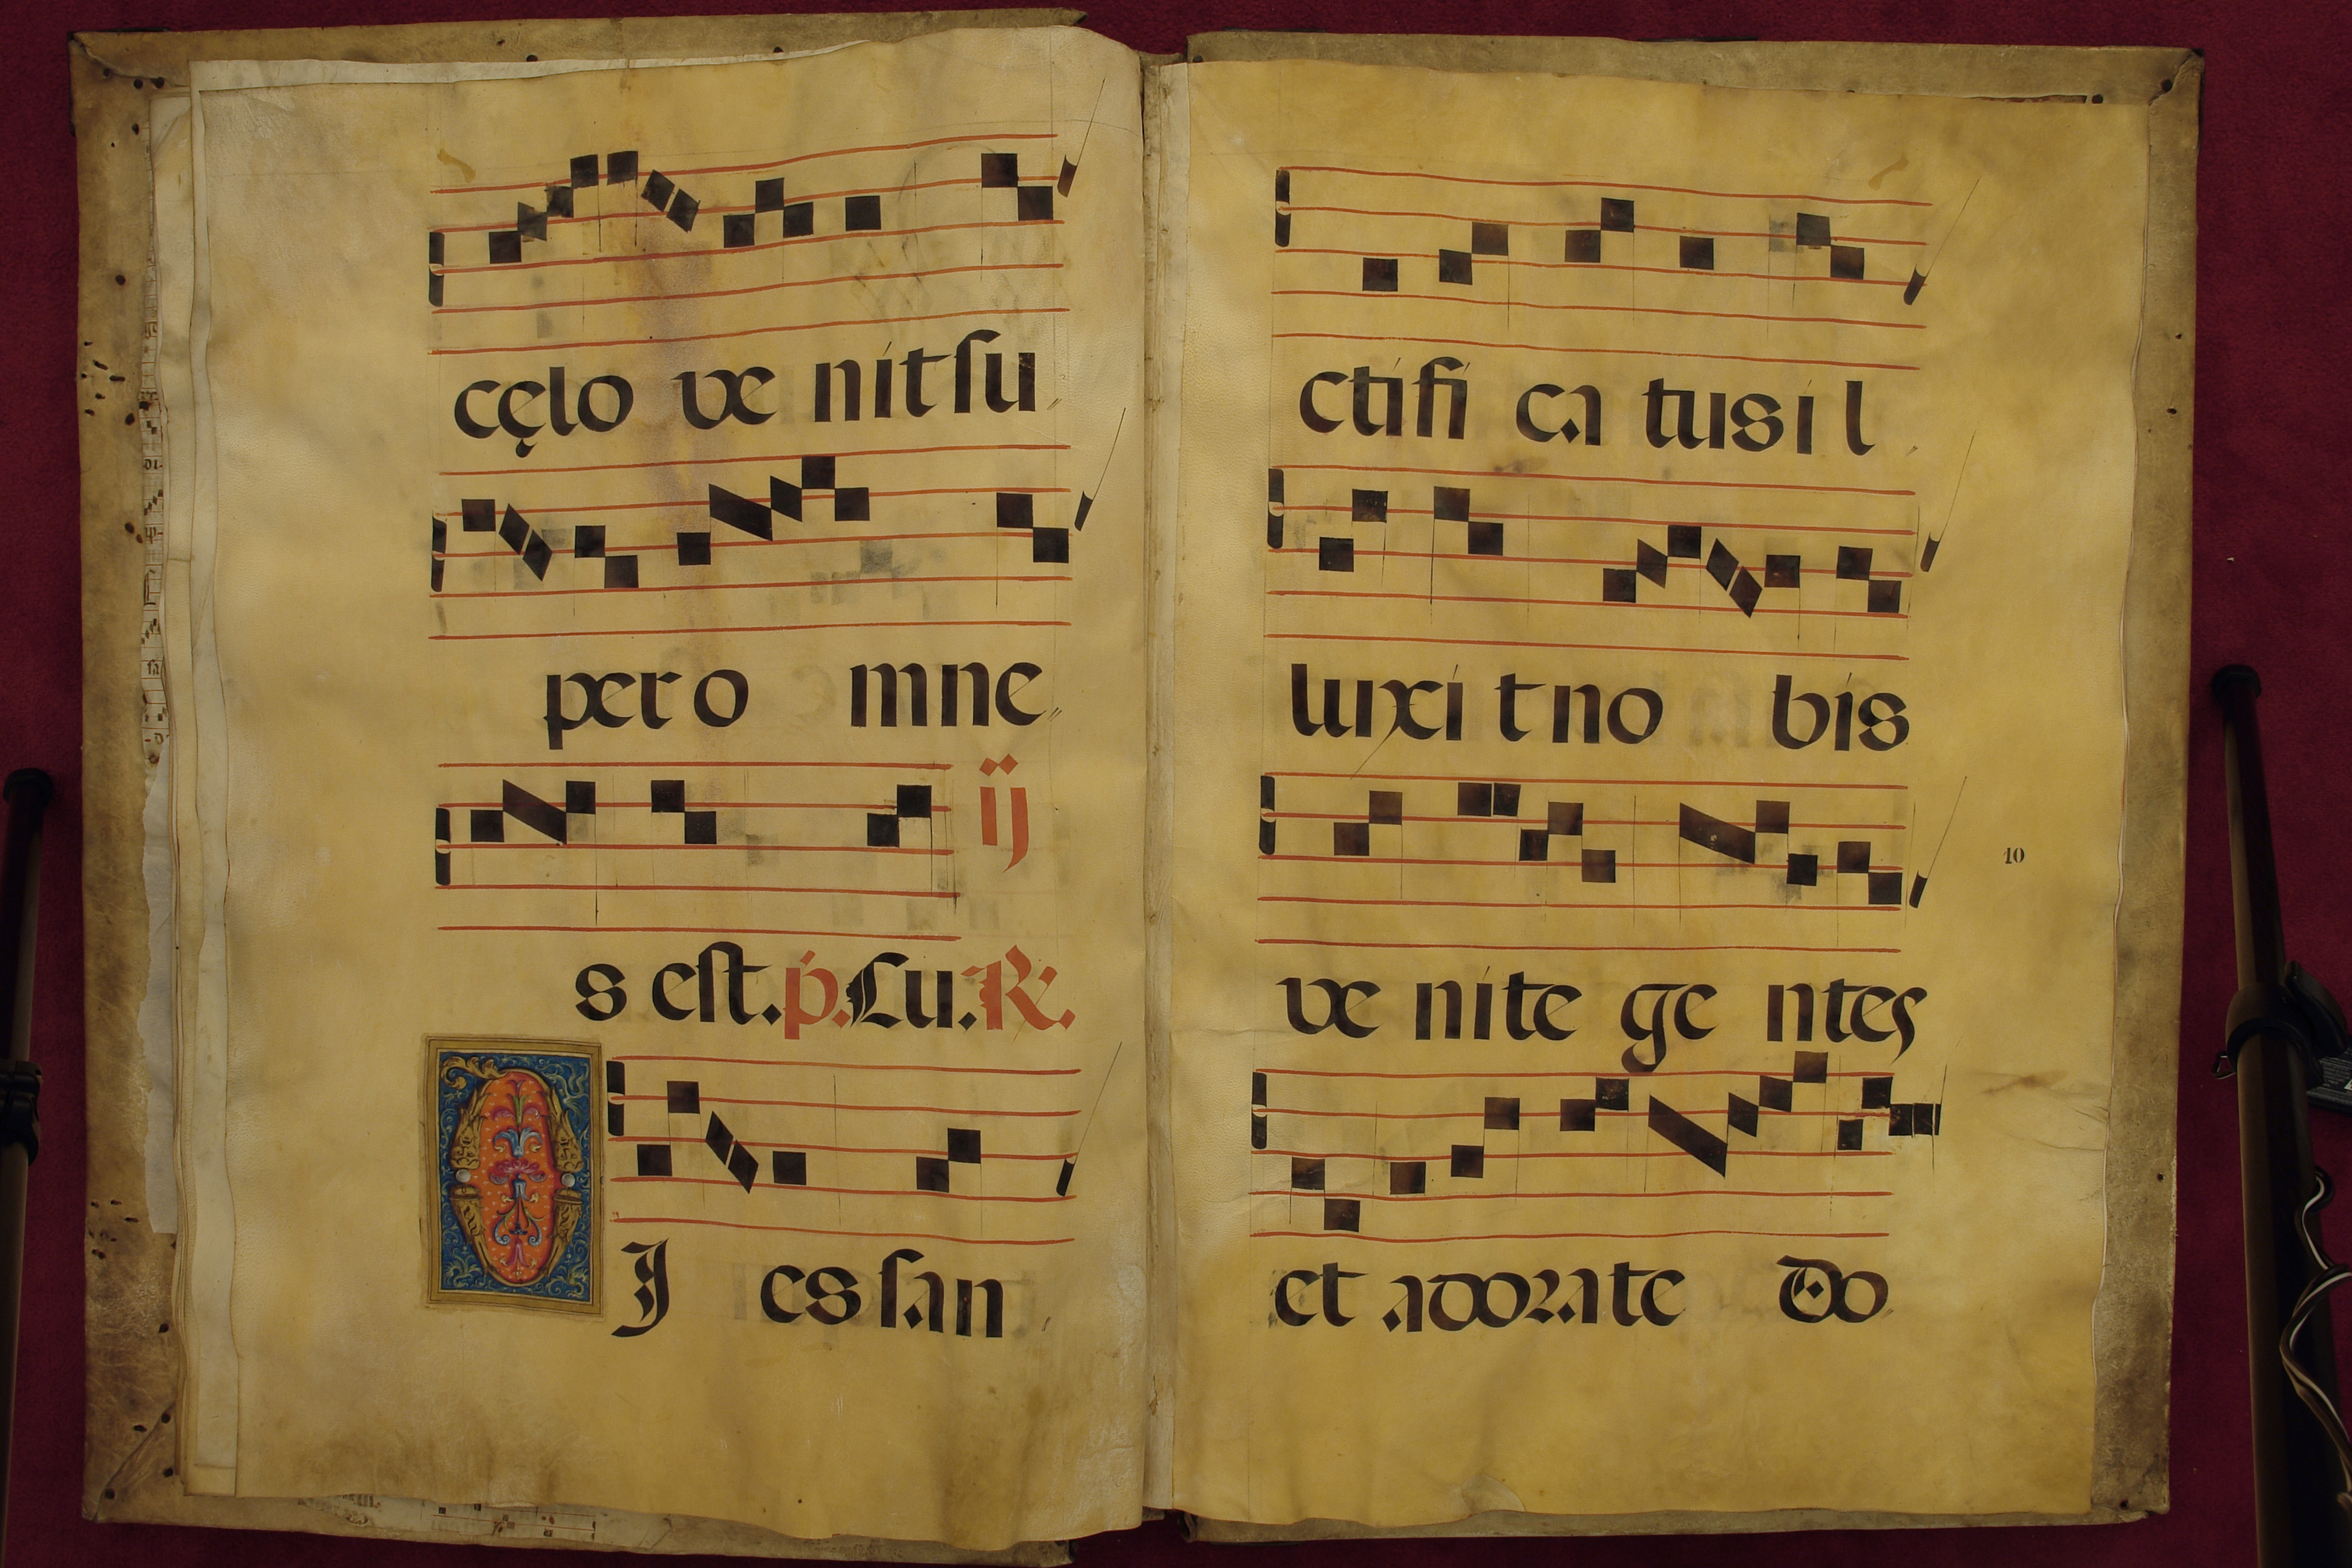 cęlo ve nit ſu
per o mne
ij
s eſt. p. Lu. R.
D J es ſan
ctifi ca tus i l
luxi t no bis
ve nite ge ntes
10
et adorate Do